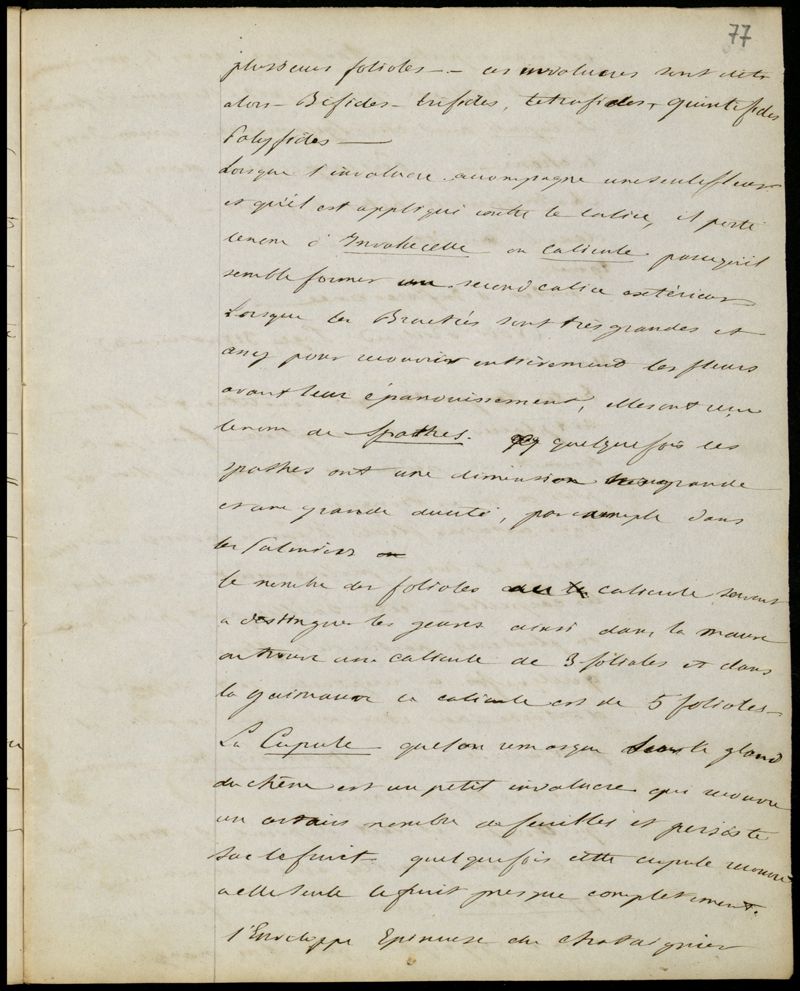 77
plusieurs folioles — ces involucres sont dits
alors – Bifides – trifides, tetrafides, quintifides
Polyfides —
Lorsque l'involucre accompagne une seule fleur
et qu'il est appliqué contre le calice, il porte
le nom d'Involucelle ou calicule parcequ'il
semble former un second calice extérieur
Lorsque les Bractées sont très grandes et
assez pour recouvrir entièrement les fleurs
avant leur épanouissement, elles ont reçu
le nom de Spathes. quelquefois les
spathes ont une dimension grande
et une grande dureté, par exemple dans
les Palmiers
le nombre des folioles du calicule servent
a distinguer les genres ainsi dans la mauve
on trouve une calicule de 3 folioles et dans
la guimauve ce calicule est de 5 folioles –
La Cupule que l'on remarque sur le gland
du chêne est un petit involucre qui recouvre
un certain nombre de feuilles et persiste
sur le fruit – quelquefois cette cupule recouvre
a elle seule le fruit presque completement.
l'Enveloppe Epineuse du chataignier